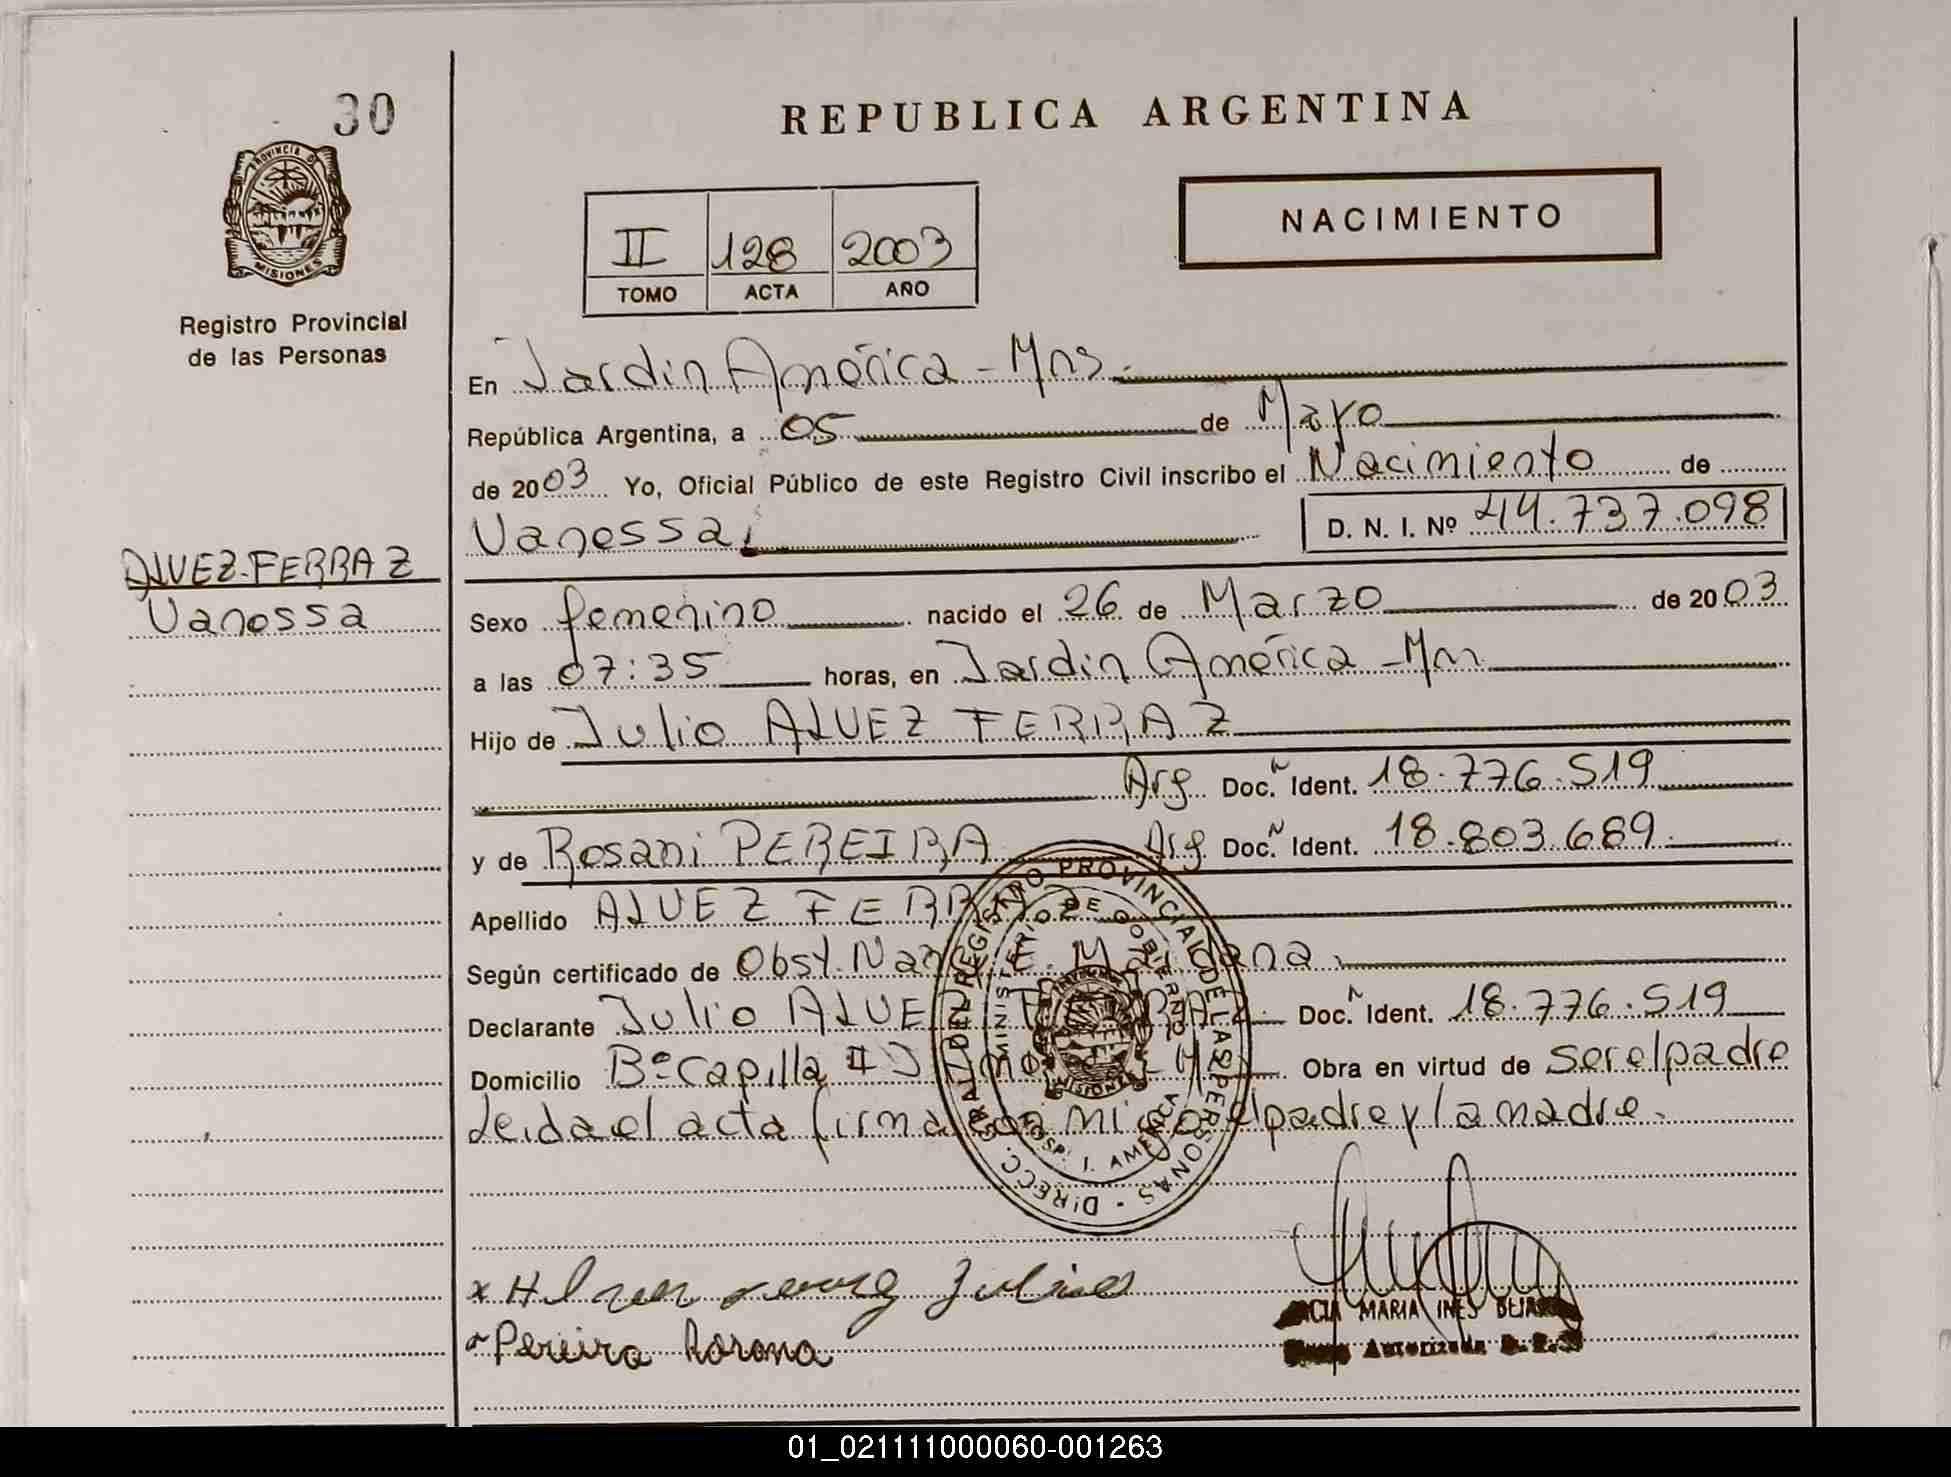 30
REPUBLICA ARGENTINA
PROVINCIA DE
MISIONES
Registro Provincial
de las Personas
II 128 2003
TOMO ACTA AÑO
NACIMIENTO
En Jardin América - Mns.
República Argentina, a 05 de Mayo
de 2003 Yo, Oficial Público de este Registro Civil inscribo el Nacimiento de
Vanessa, D. N. I. Nº 44.737.098
ALVEZ-FERRAZ
Vanessa
Sexo femenino nacido el 26 de Marzo de 2003
a las 07:35 horas, en Jardin América - Mn
Hijo de Julio ALVEZ FERRAZ
Arg Doc. Ident. 18.776.519
y de Rosani PEREIRA Arg Doc. Ident. 18.803.689
Apellido ALVEZ FERRAZ
Según certificado de Obst. E.
Declarante Julio ALVEZ FERRAZ Doc. Ident. 18.776.519
Domicilio Bº Capilla II J. Obra en virtud de ser el padre
Leida el acta firma el padre y la madre.
DIRECC. GRAL. DEL REGISTRO PROVINCIAL DE LAS PERSONAS
MINISTERIO DE GOBIERNO
HOSP. J. AMERICA
MISIONES
x Julio
Pereira Rosana
MARIA INES
Autorizada
01_021111000060-001263